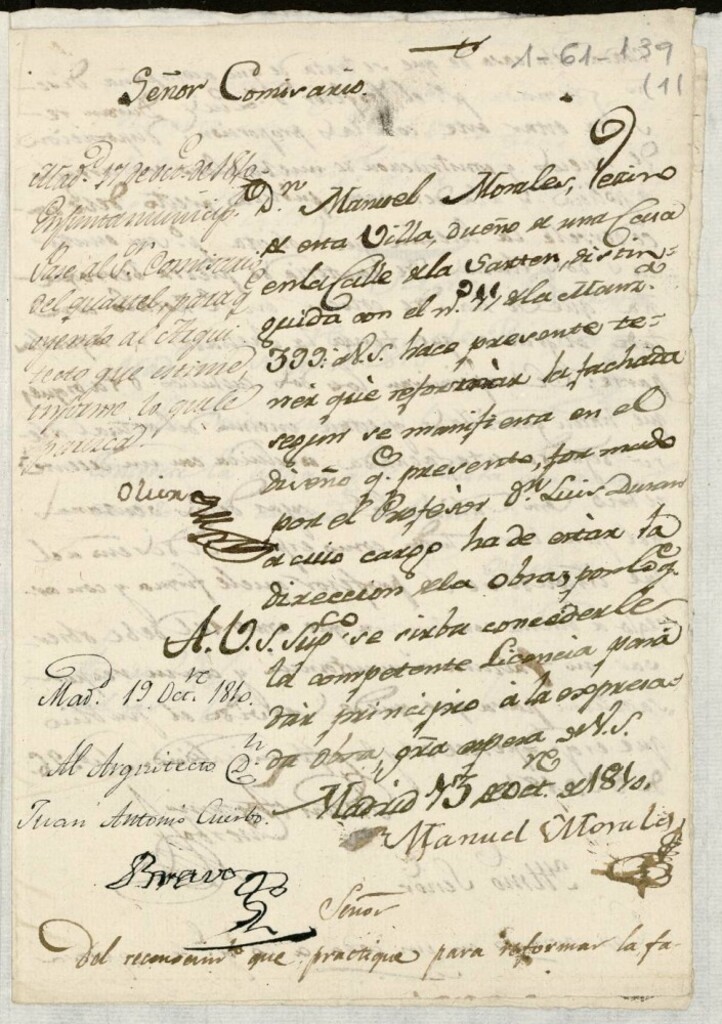 1-61-139
(1)
Señor Comisario.
Mad.d 17 de Oct.e de 1810.
En Junta municip.l
Pase al S.r Comisario
del quartel, para q.e
oyendo al Arqui
tecto que estime,
informe lo que le
parezca.
Olive
D.n Manuel Morales, vecino
de esta Villa, dueño de una Casa
en la Calle de la Sarten, distin=
guida con el n.o 11 de la Manz.a
399: á V.S. hace presente te=
ner que reformar la fachada
segun se manifiesta en el
diseño q.e presenta, formado
por el Profesor D.n Luis Duran
á cuio cargo ha de estar la
direccion de la Obra, por lo q.e
A. V. S. Sup.co se sirba concederle
la competente Licencia para
dar principio á la expresa=
da Obra, gra espera de V.S.
Madrid 13 de Oct.re de 1810.
Manuel Morales
Mad.d 19 Oct.re 1810.
Al Arquitecto D.n
Juan Antonio Cuerbo.
Bravo
Señor
Del reconocim.to que practiqué para reformar la fa-